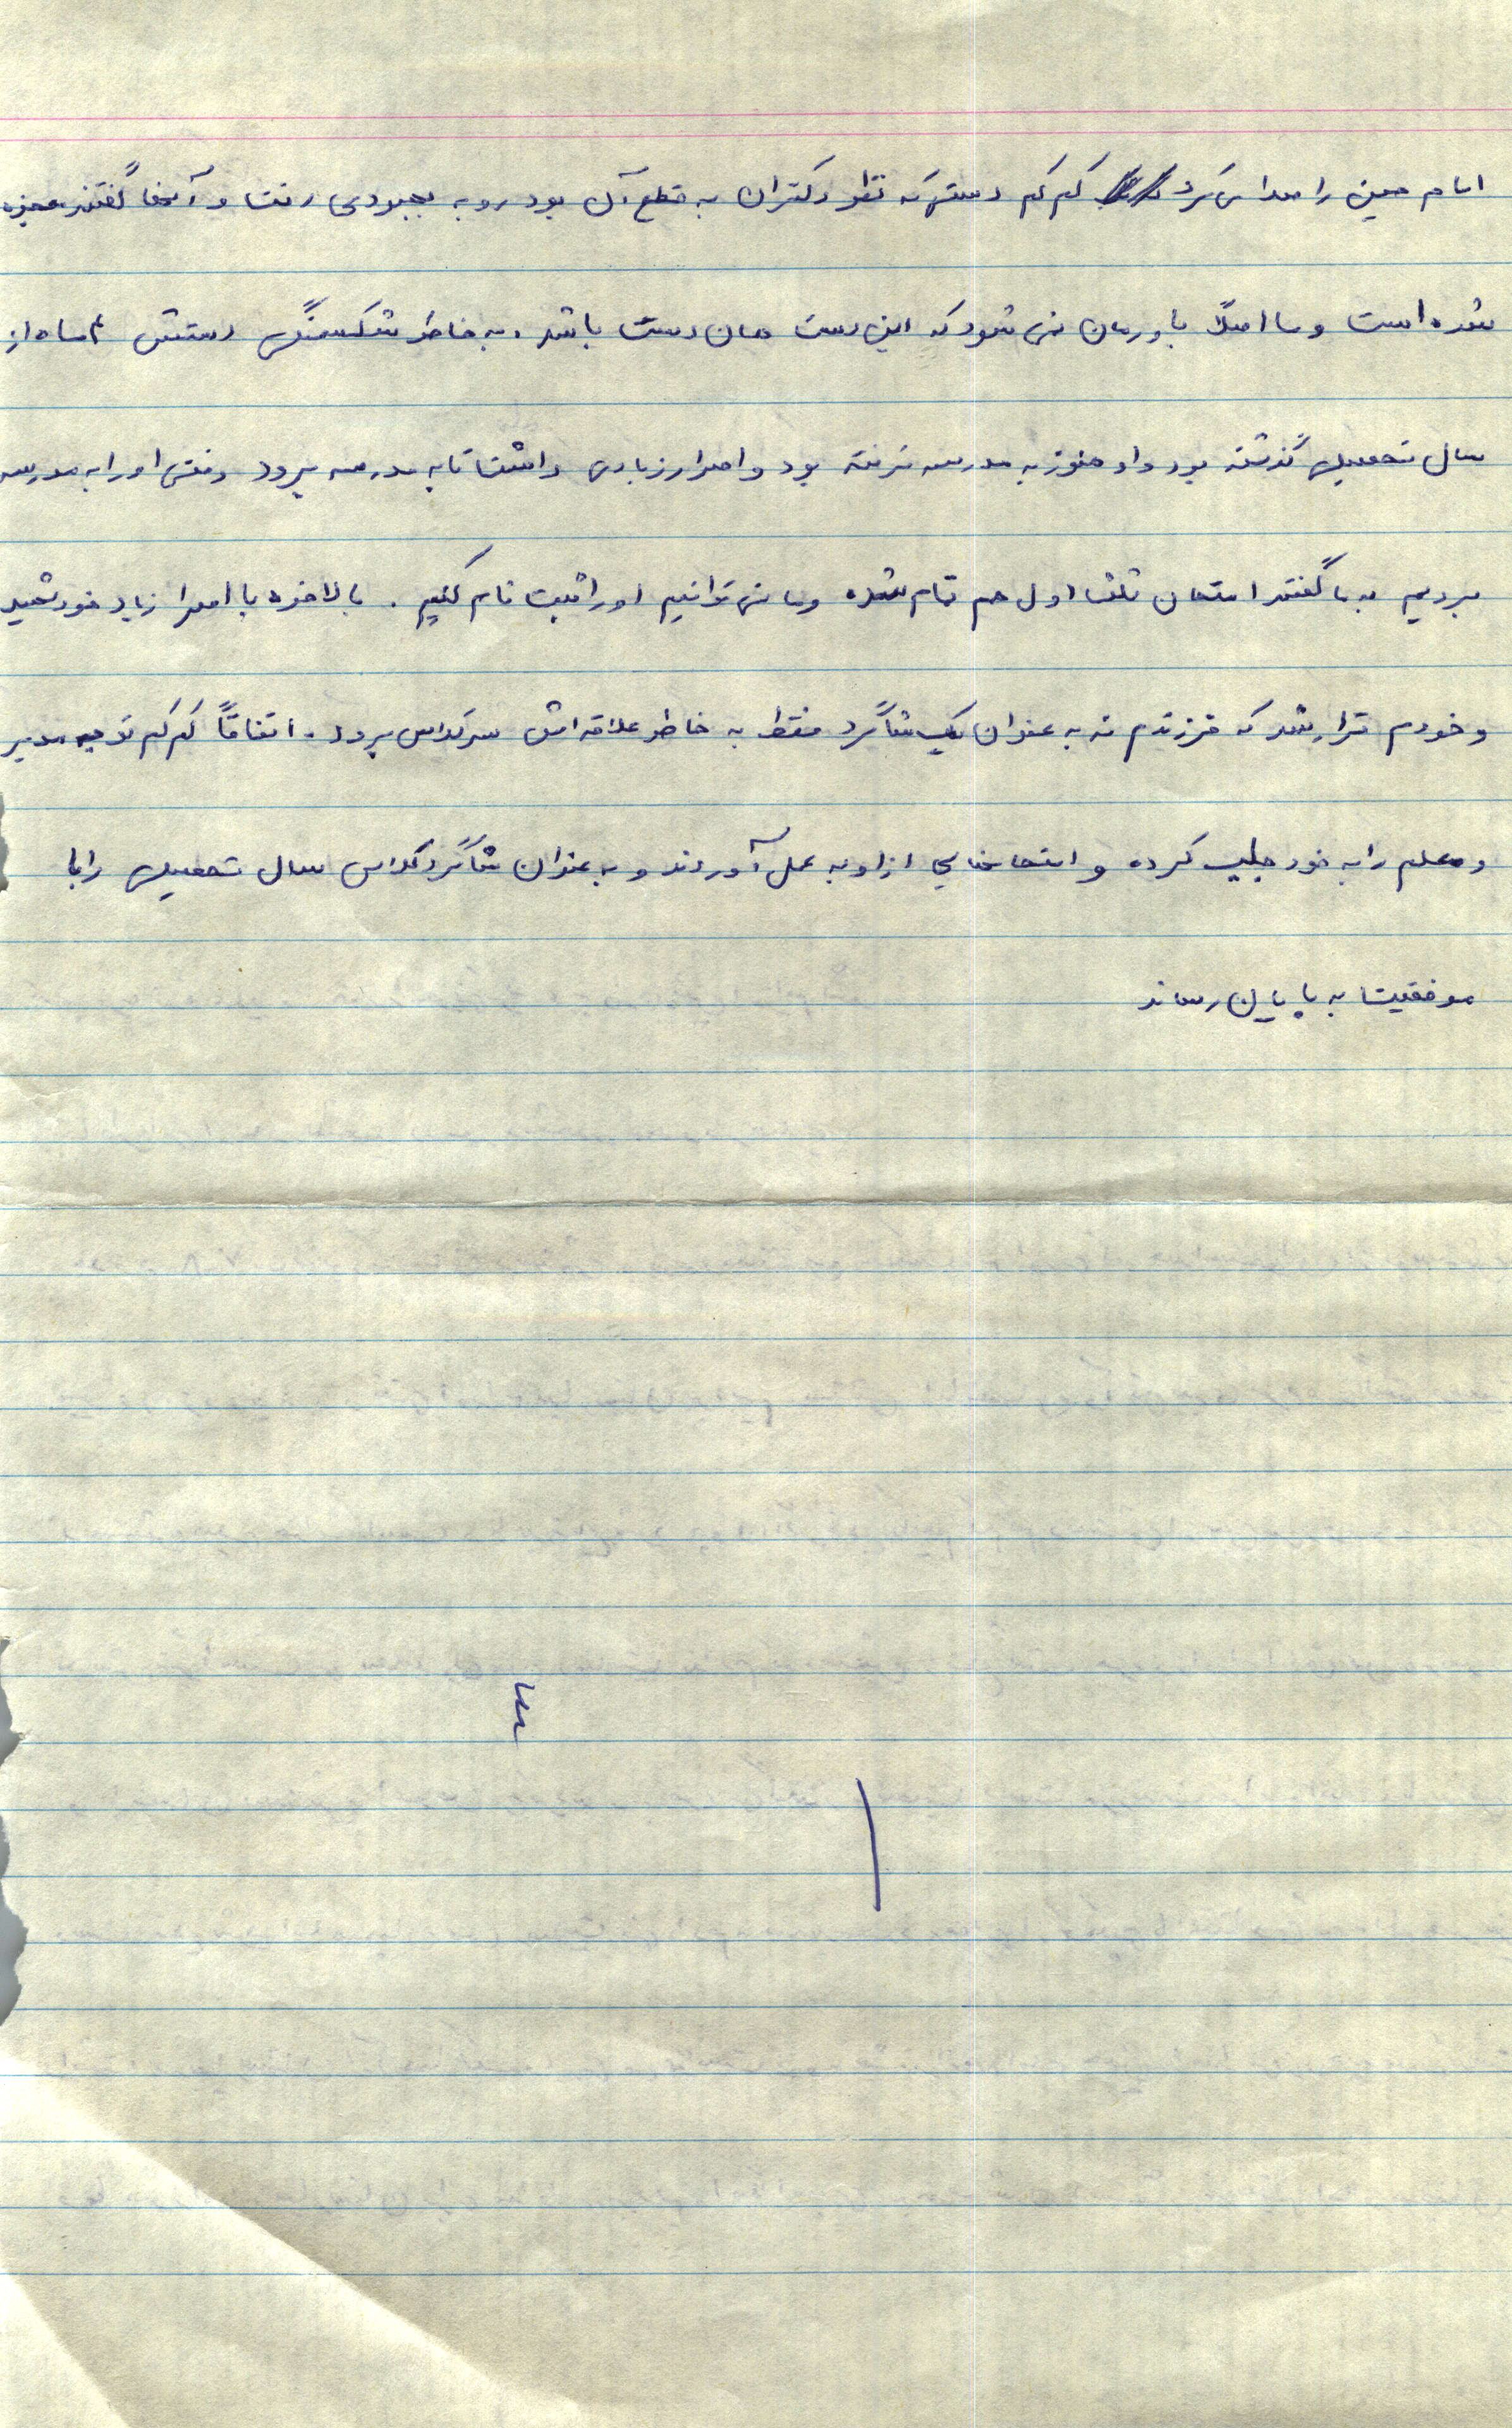 امام حسین را صدا می‌کرد کم کم دستی که نظر دکتران به قطع آن بود رو به بهبودی رفت و آنها گفتند معجزه
شده است و ما اصلاً باورمان نمی شود که این دست همان دست باشد . به خاطر شکستگی دستش ۴ ماه از
سال تحصیلی گذشته بود و او هنوز به مدرسه نرفته بود و اصرار زیادی داشت تا به مدرسه برود وقتی او را به مدرسه
بردیم به ما گفتند امتحان ثلث اول هم تمام شده و ما نمی توانیم او را ثبت نام کنیم . بالاخره با اصرا زیاد خود شهید
و خودم قرار شد که فرزندم نه به عنوان یک شاگرد فقط به خاطر علاقه اش سر کلاس برود . اتفاقاً کم کم توجه مدیر
و معلم را به خود جلب کرده و امتحانهایی از او به عمل آوردند و به عنوان شاگرد کلاس سال تحصیلی را با
موفقیت به پایان رساند